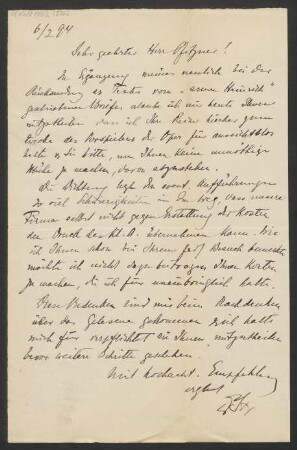 6/2 94
Sehr geehrter Herr Pfitzner!
In Ergänzung meines neulich bei der
Rücksendung des Textes vom "armen Heinrich"
geschriebenen Briefes, erlaube ich mir heute Ihnen
mitzutheilen dass ich Ihre Reise hierher zum
Zwecke des Vorspielens der Oper für aussichtslos
halte u. Sie bitte, um Ihnen keine unnöthige
Mühe zu machen, davon abzusehen.
Die Dichtung legt der event. Aufführungen
so viel Schwierigkeiten in den Weg, dass unsere
Firma selbst nicht gegen Erstattung der Kosten
den Druck des Kl. A. übernehmen kann. Wie
ich Ihnen schon bei Ihrem Besuch bemerkte
möchte ich nicht dazu beitragen Ihnen Kosten
zu machen, die ich für uneinbringlich halte.
Diese Bedenken sind mir beim Nachdenken
über das Gelesene gekommen u. ich halte
mich für verpflichtet sie Ihnen mitzutheilen
bevor weitere Schritte geschehen.
Mit hochacht. Empfehlung
ergbst